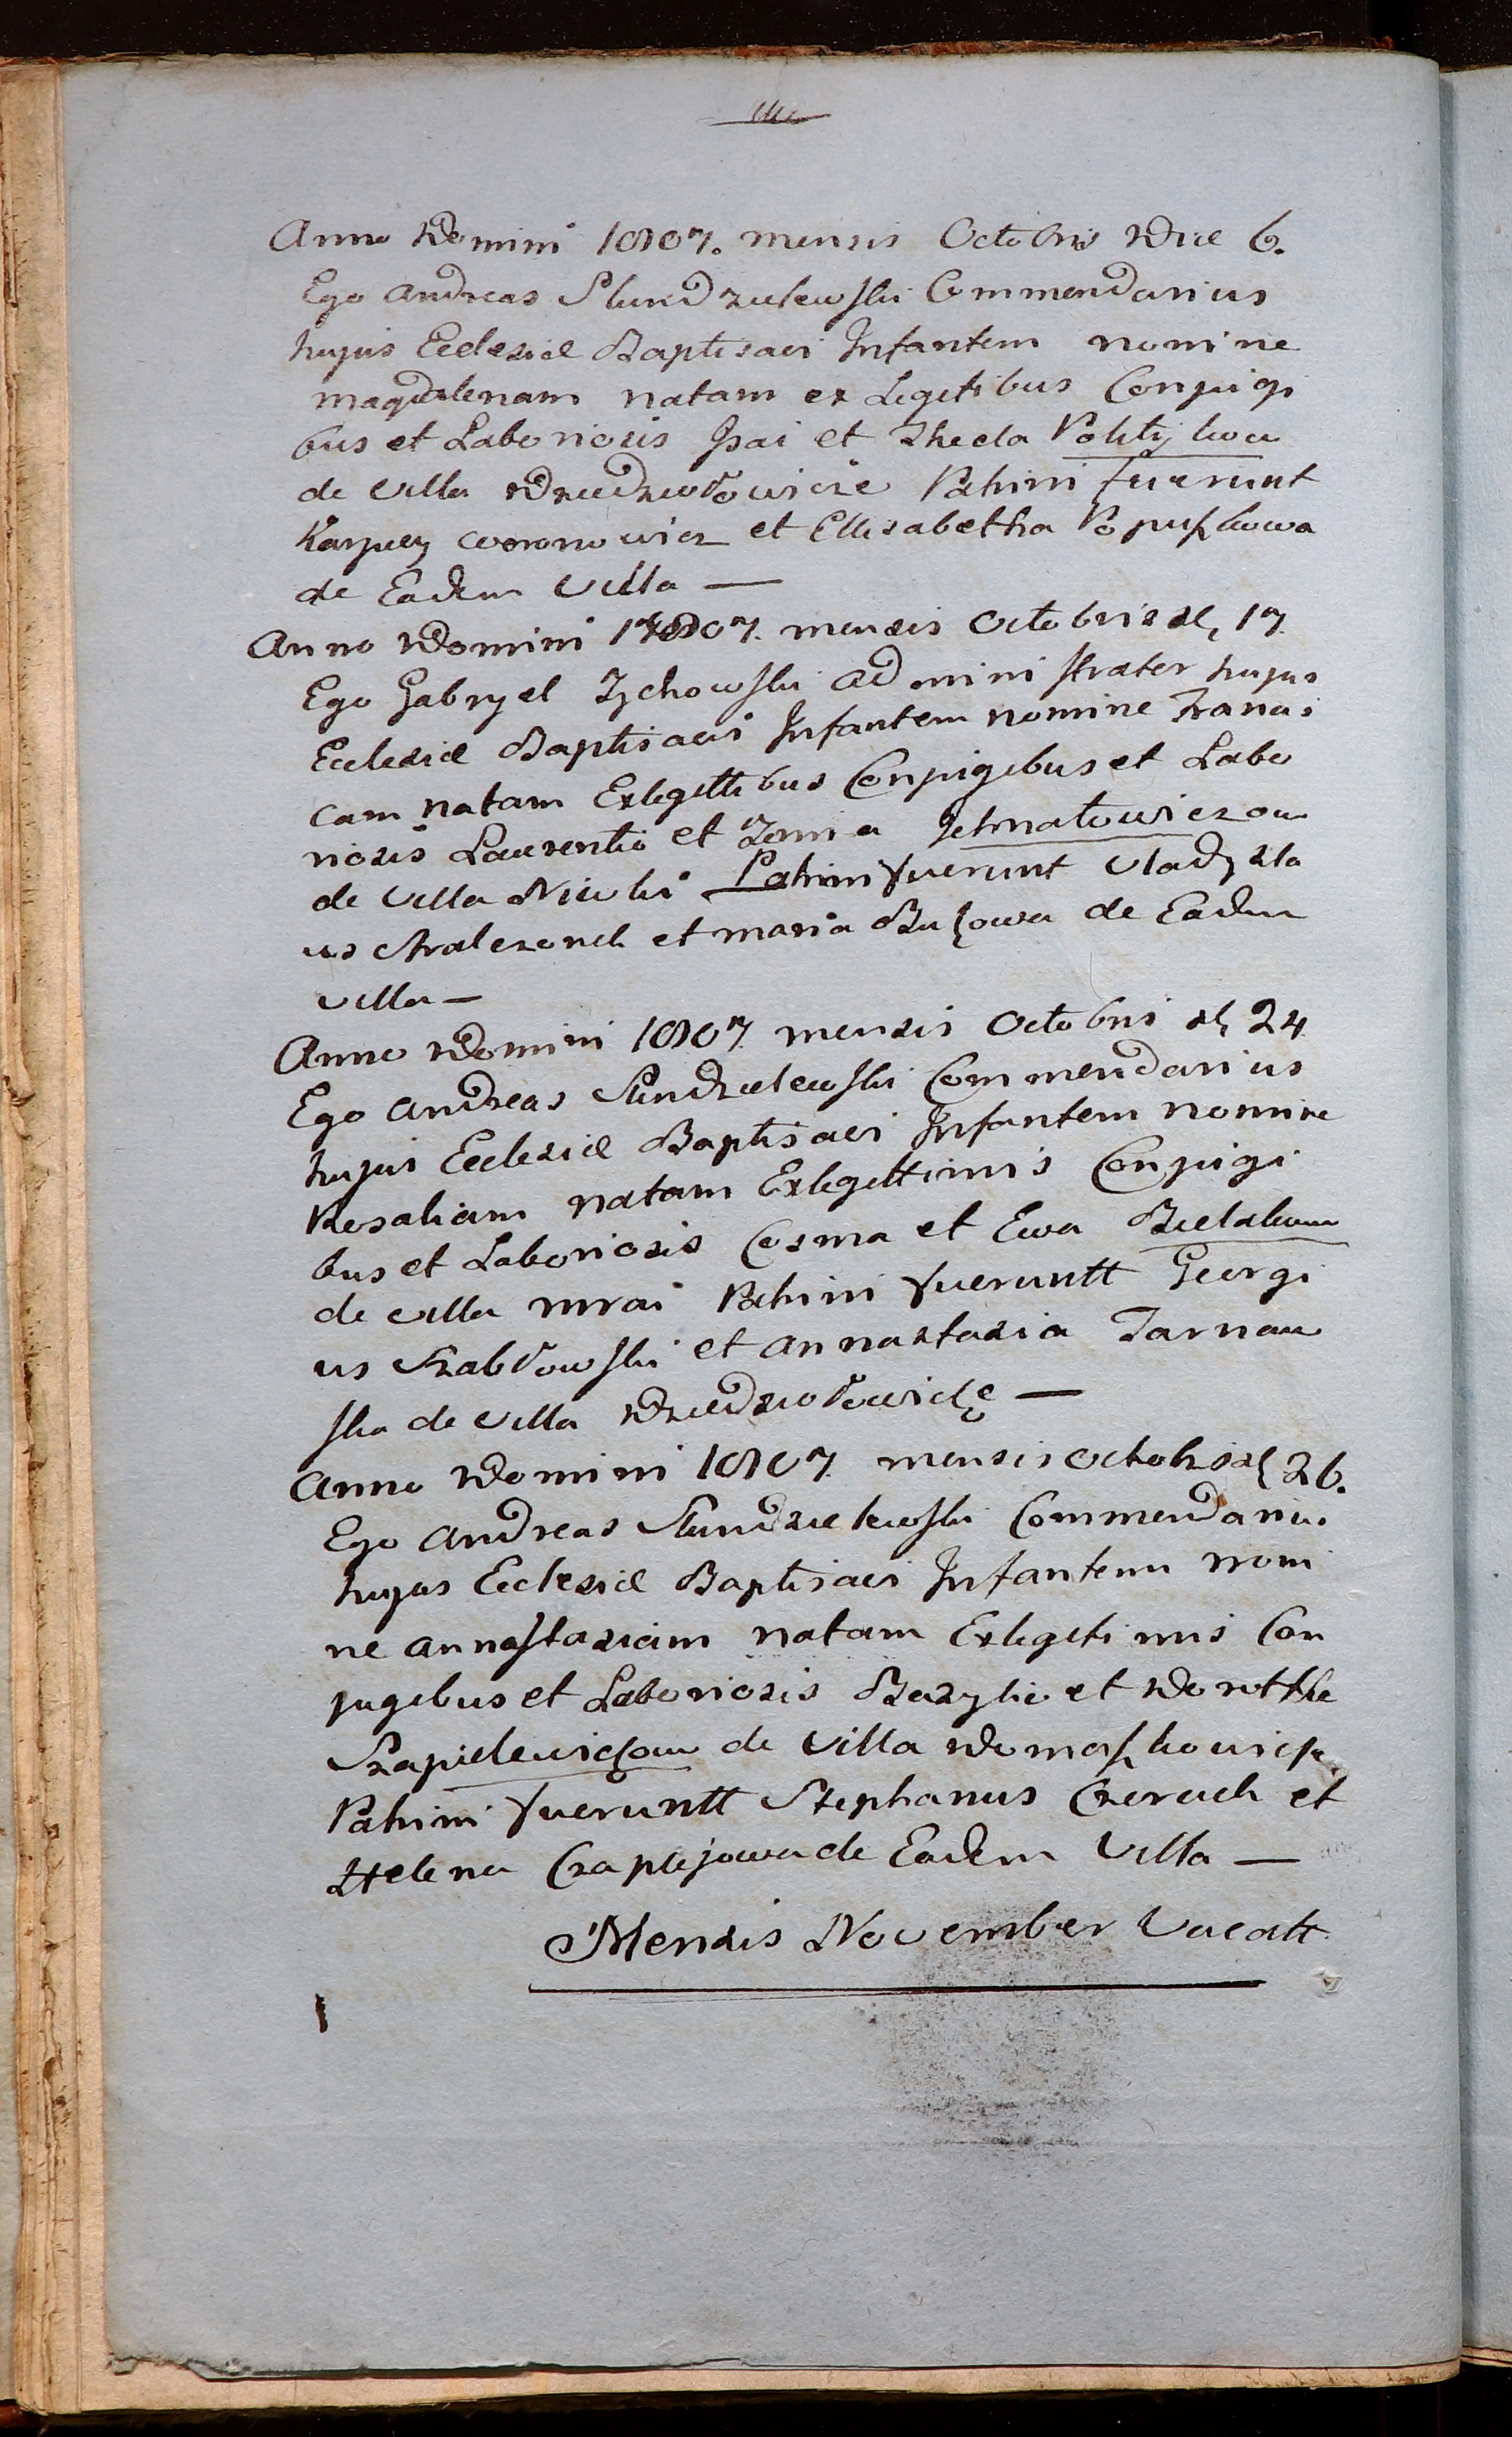 Anno Domini 1807. mensis Octobris Die 6.
Ego Andreas Slundzulewski Commendarius
hujus Eclesiæ Baptisavi Infantem nomine
Magdalenam natam ex Legetibus Conjugi
bus et Laboriosis Isai et Thecla
de Villa Patrini fuerunt
Woronowicz et Ellisabetha
de Eadem Villa —
Anno Domini 1807. mensis Octobris d, 17
Ego Gabryel Zychowski Administrater hujus
Eclesiæ Baptisavi Infantem nomine Francis
cam natam Exlegettibus Conjugebus et Labo
riosis Laurentio et
de Villa Niwki Patrini fuerunt Vladysla
us et Maria de Eadem
Villa —
Anno Domini 1807 mensis Octobris d, 24
Ego Andreas Slundzulewski Commendarius
hujus Eclesiæ Baptisavi Infantem nomine
Rosaliam natam Exlegettimis Conjugi
bus et Laboriosis Cosma et Ewa
de Villa Patrini fueruntt Georgi
us Szabłowski et Annastasia Tarnaw
ska de Villa
Anno Domini 1807 mensis Octobris d, 26.
Ego Andreas Slundzulewski Commendarius
hujus Eclesiæ Baptisavi Infantem nomi
ne Annastasiam natam Exlegetimis Con
jugebus et Laboriosis Bazylio et Dorotthe
de Villa
Patrini fueruntt Stephanus et
Helena Czaplejowa de Eadem Villa —
Mensis November Vacatt